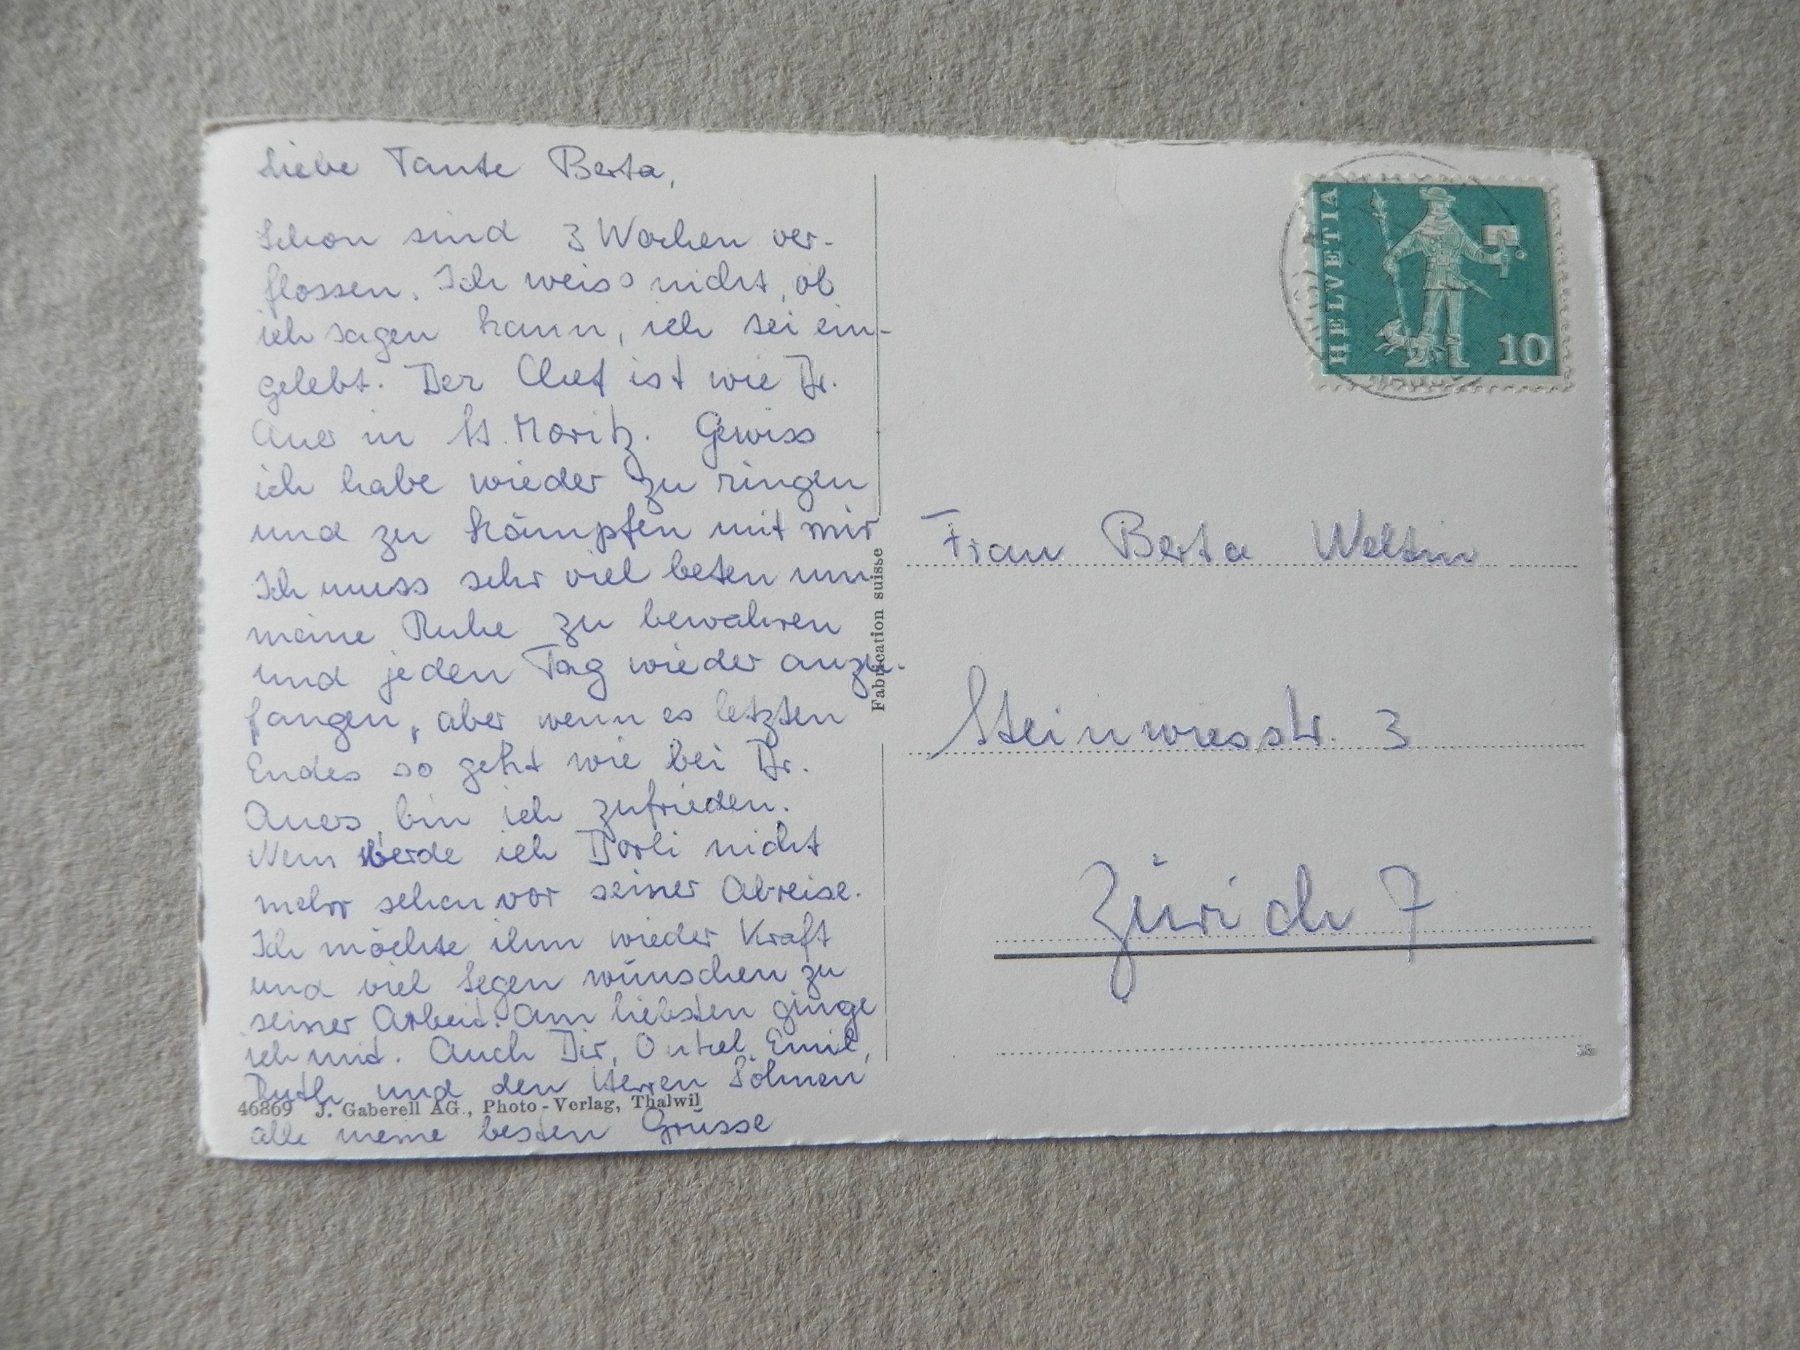 Liebe Tante Berta,
Schon sind 3 Wochen ver-
flossen. Ich weiss nicht, ob
ich sagen kann, ich sei ein-
gelebt. Der Chef ist wie Dr.
Auer in St. Moritz. Gewiss
ich habe wieder zu ringen
und zu kämpfen mit mir
Ich muss sehr viel beten um
meine Ruhe zu bewahren
und jeden Tag wieder anzu-
fangen, aber wenn es letzten
Endes so geht wie bei Dr.
Auers, bin ich zufrieden.
Nun werde ich Dorli nicht
mehr sehen vor seiner Abreise.
Ich möchte ihm wieder Kraft
und viel Segen wünschen zu
seiner Arbeit. Am liebsten ginge
ich mit. Auch Dir, Onkel Emil,
Ruth und den Herren Söhnen
46869 J. Gaberell AG., Photo-Verlag, Thalwil
alle meine besten Grüsse
Fabrication suisse
HELVETIA
10
Frau Berta Weltin
Steinwiesstr. 3
Zürich 7